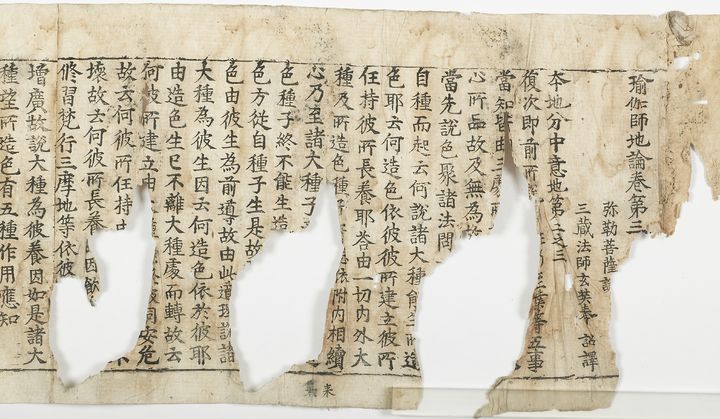 瑜伽師地論卷第三
弥勒菩薩
三蔵法師玄奘奉 詔譯
本地分中意地第二之三
復次即前所 等五事
當知皆由三處所
心所品故及無為故
當先說色聚諸法問
自種而起云何說諸大種能生所造
色耶云何造色依彼彼所建立彼所
任持彼所長養耶荅由一切内外大
種及所造色種子 悉依附内相續
心乃至諸大種子
色種子終不能生造
色方從自種子生是故
色由彼生為前導故由此道理說諸
大種為彼生因云何造色依於彼耶
由造色生已不離大種處而轉故云
何彼所建立由 彼同安危
故云何彼所任持由 不
壞故云何彼所長養 因飲
修習梵行三摩地等依彼
增廣故說大種為彼養因如是諸大
種望所造色有五種作用應知